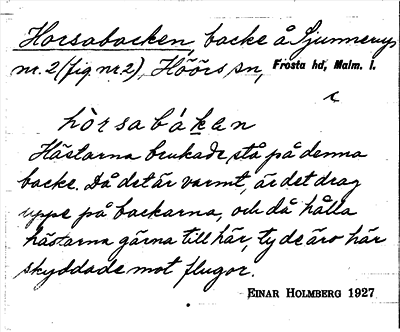 Horsabacken, backe å Sjunnerup
nr. 2 (fig nr. 2), Höörs sn, Frosta hd, Malm. l.
hòrsabákan
Hästarna brukade stå på denna
backe. Då det är varmt, är det drag
uppe på backarna, och då hålla
hästarna gärna till här, ty de äro här
skyddade mot flugor.
EINAR HOLMBERG 1927